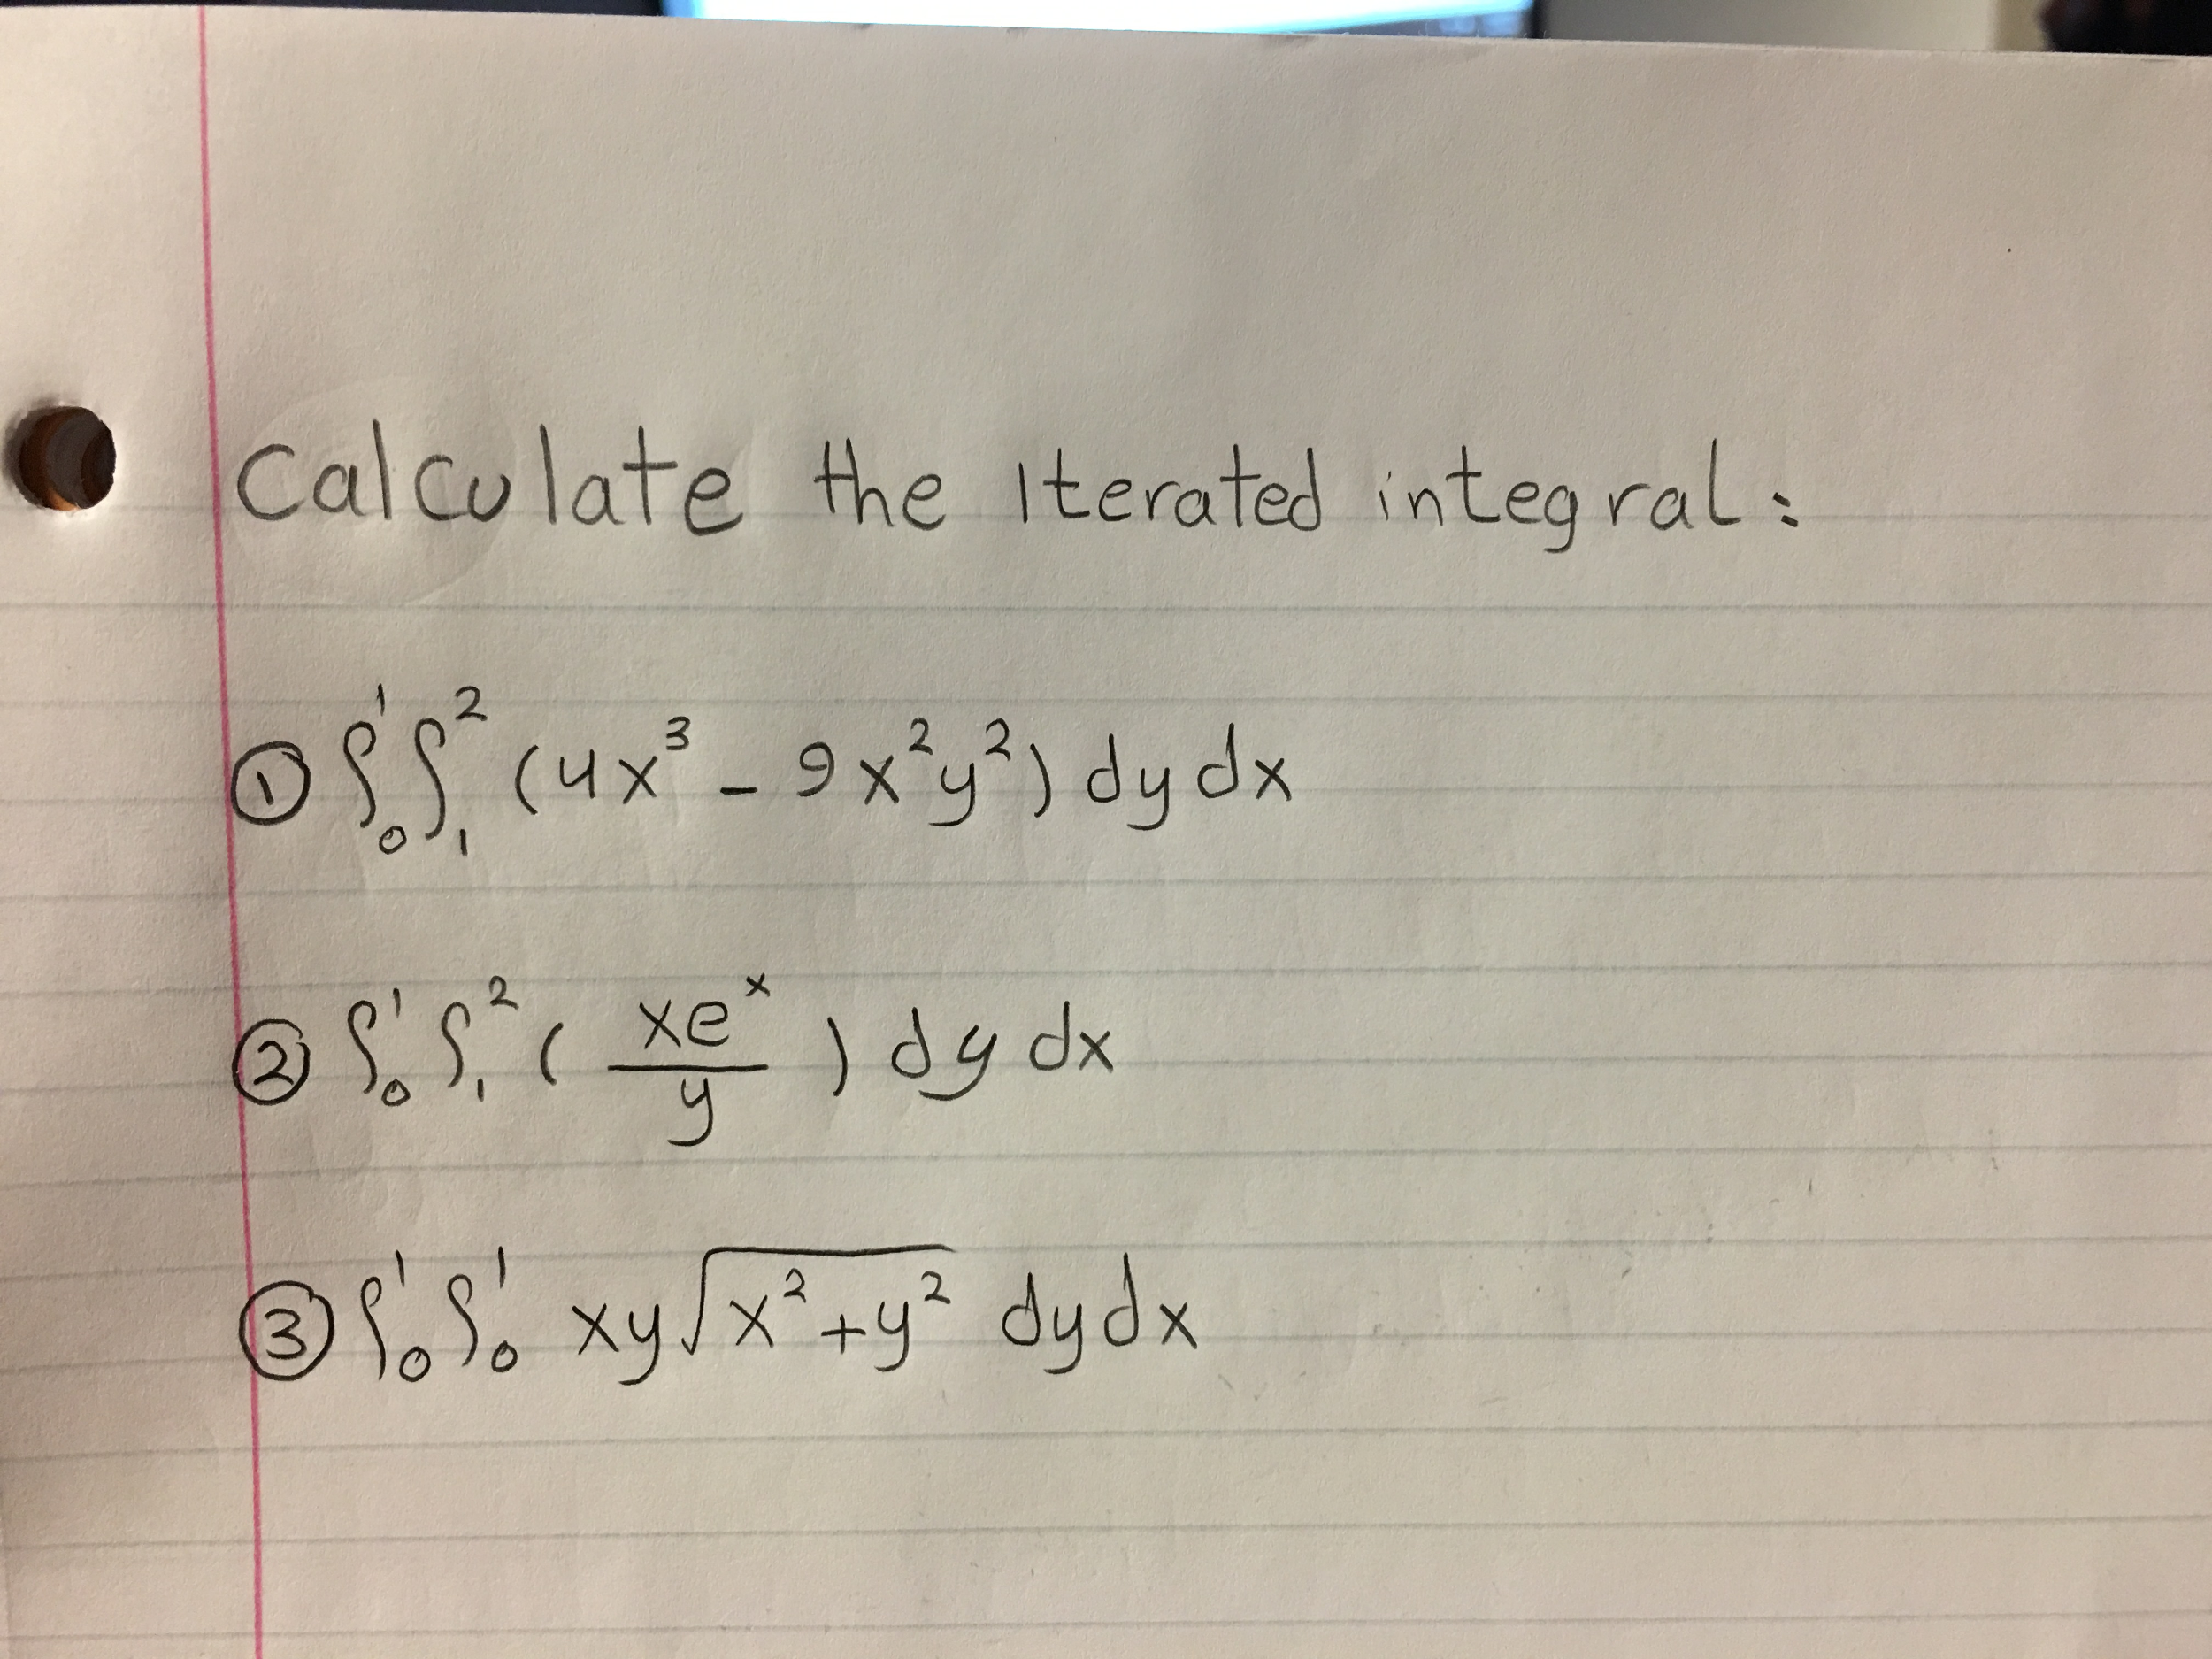 Calculate the Iterated integral:
① ∫₀¹ ∫₁² (4x³ - 9x²y²) dy dx
② ∫₀¹ ∫₁² (xeˣ/y) dy dx
③ ∫₀¹ ∫₀¹ xy√(x²+y²) dy dx